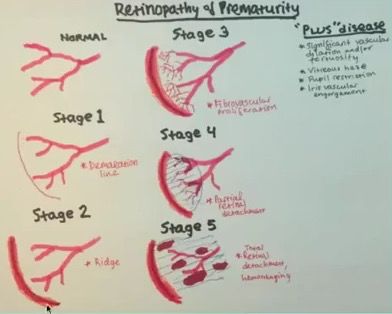 Retinopathy of Prematurity
NORMAL
Stage 1
* Demarcation
line
Stage 2
* Ridge
Stage 3
* Fibrovascular
proliferation
Stage 4
* Partial
retinal
detachment
Stage 5
* Total
Retinal
detachment,
hemorrhaging
"PLUS" disease
* Significant vascular
dilation and/or
tortuosity
* Vitreous haze
* Pupil restriction
* Iris vascular
engorgement